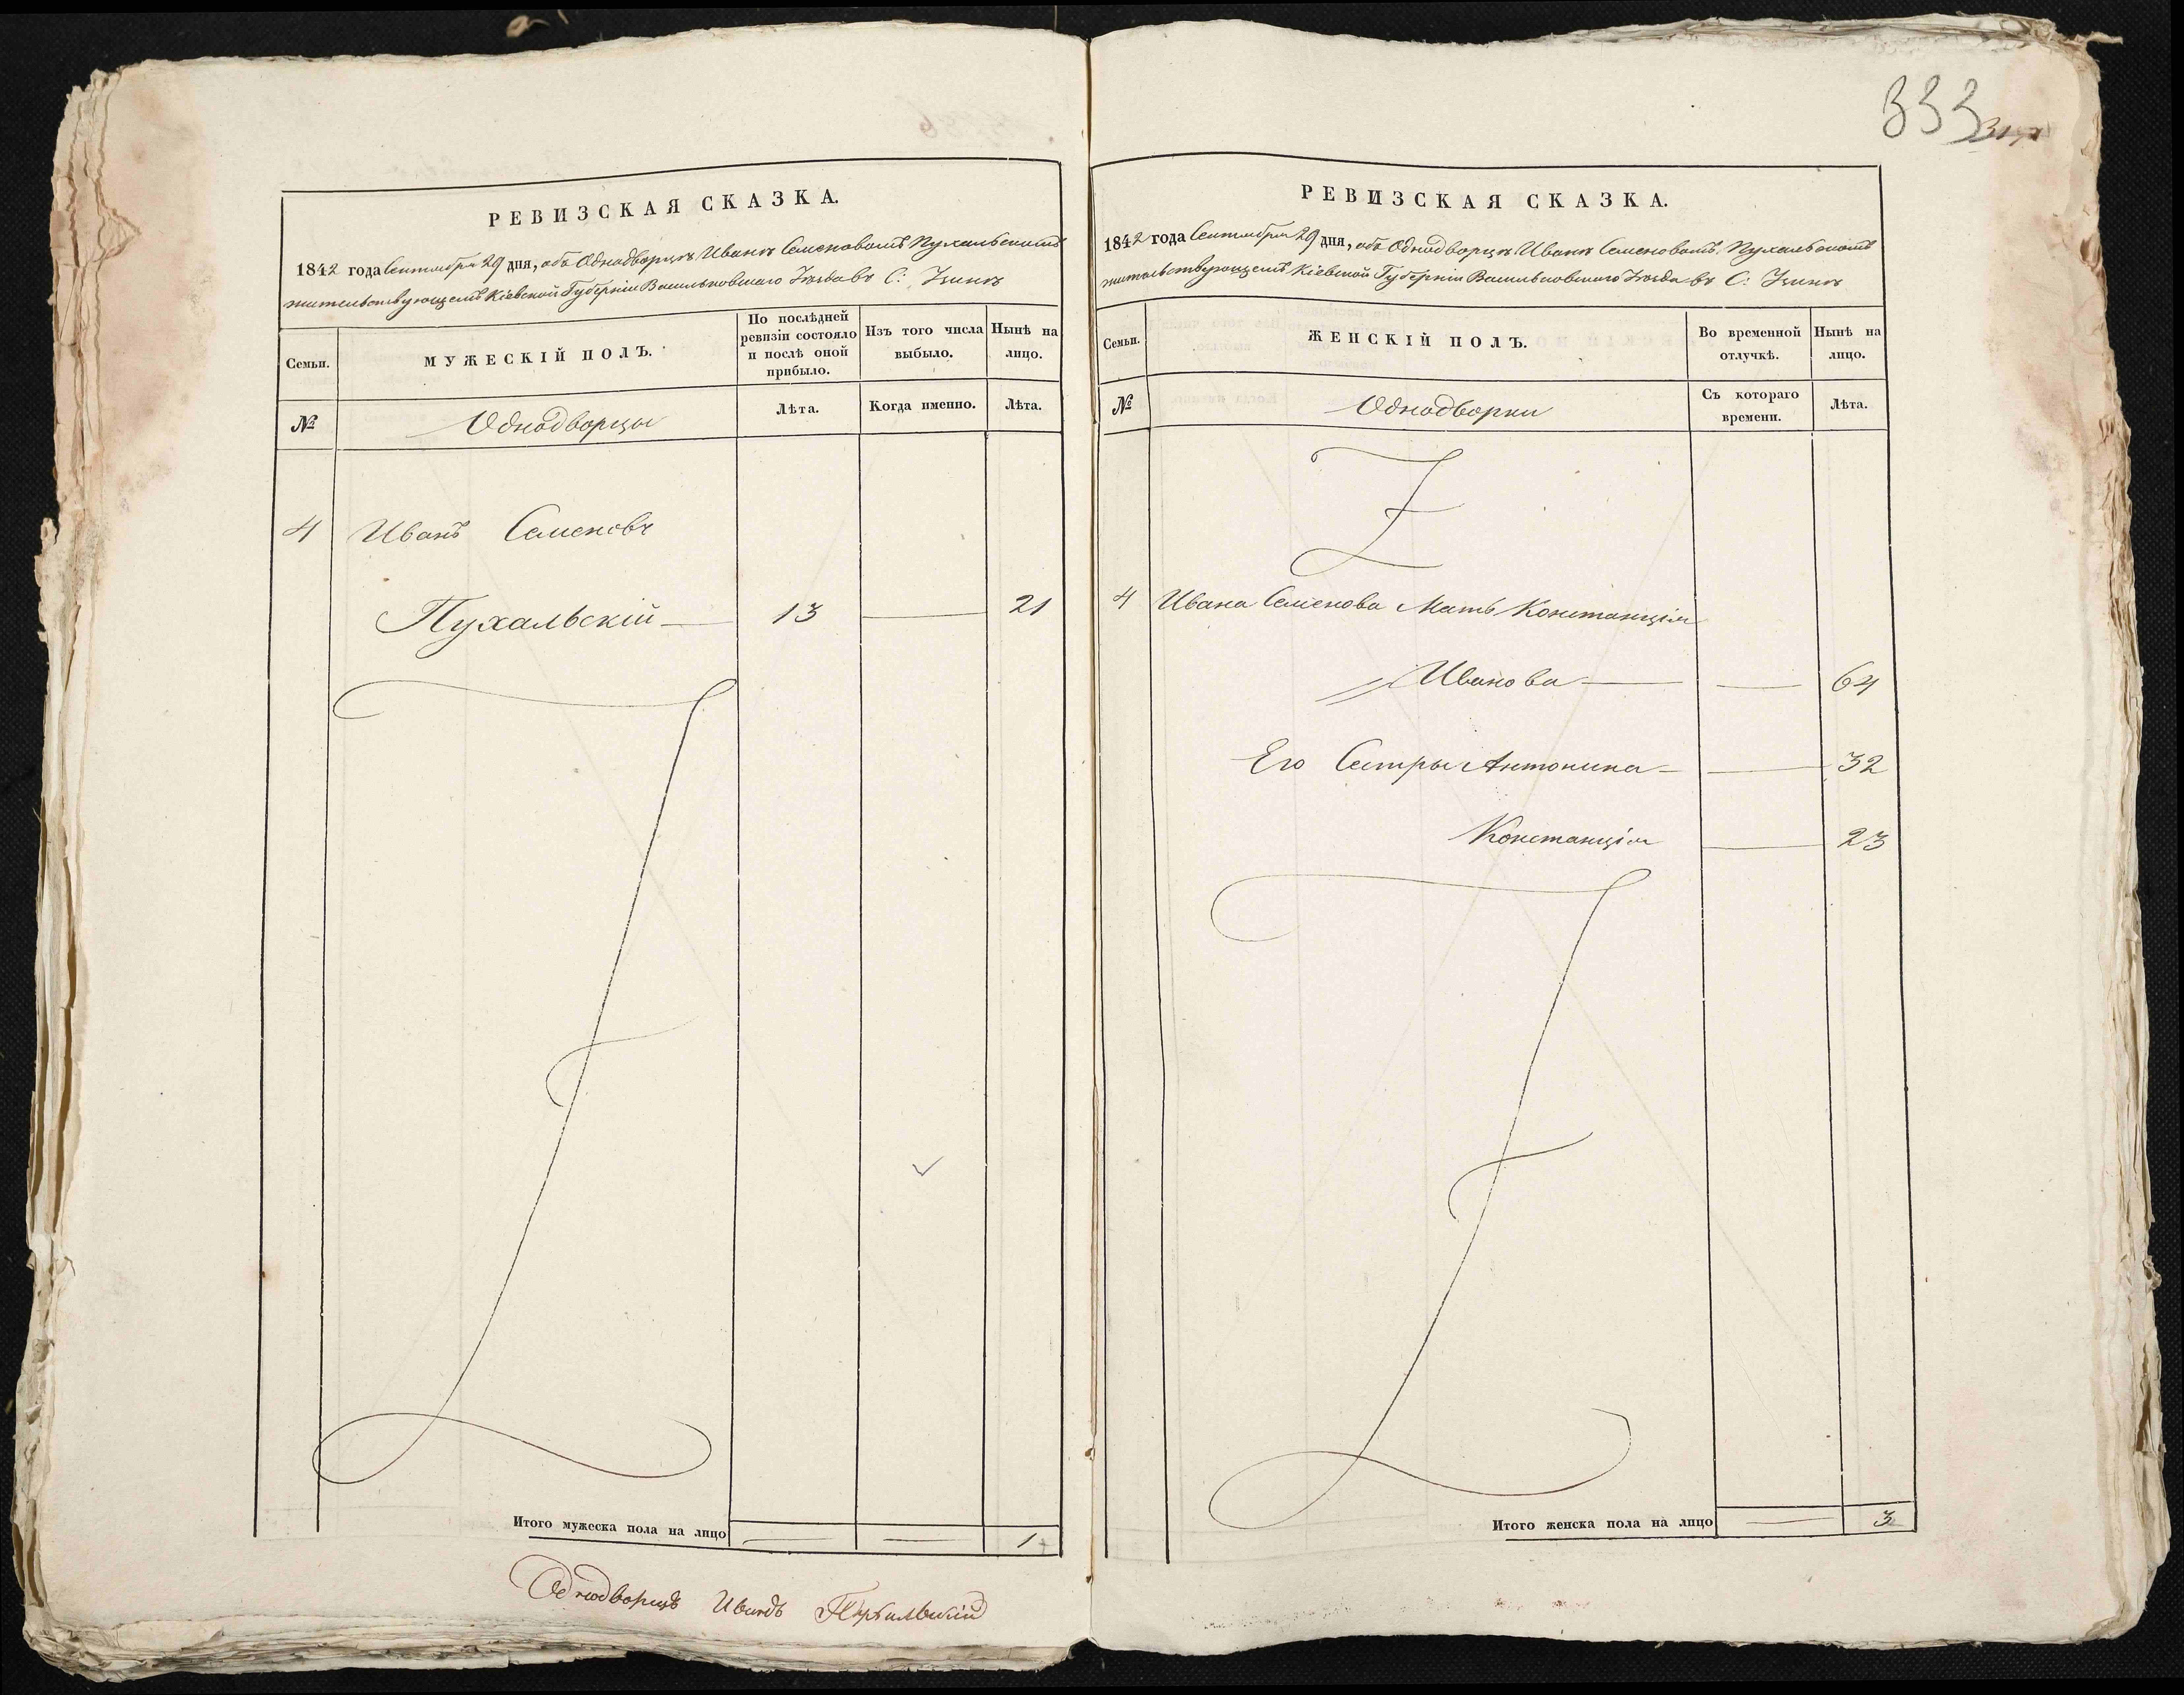 РЕВИЗСКАЯ СКАЗКА.
1842 года Сентября 29 дня, объ Однодворцѣ Иванѣ Семеновомъ Пухальскомъ
жительствующемъ Кіевской Губерніи Васильковскаго Уѣзда въ С: Узинѣ
Семьи.
МУЖЕСКІЙ ПОЛЪ.
По послѣдней ревизіи состояло и послѣ оной прибыло.
Изъ того числа выбыло.
Нынѣ на лицо.
№
Однодворцы
Лѣта.
Когда именно.
Лѣта.
4 Иванъ Семеновъ
Пухальскій 13 21
Итого мужеска пола на лицо 1
Однодворецъ Иванъ Пухальскій
333
РЕВИЗСКАЯ СКАЗКА.
1842 года Сентября 29 дня, объ Однодворцѣ Иванѣ Семеновомъ Пухальскомъ
жительствующемъ Кіевской Губерніи Васильковскаго Уѣзда въ С: Узинѣ
Семьи.
ЖЕНСКІЙ ПОЛЪ.
Во временной отлучкѣ.
Нынѣ на лицо.
№
Однодворки
Съ котораго времени.
Лѣта.
4 Ивана Семенова Мать Констанція
Иванова 64
Его Сестры Антонина 32
Констанція 23
Итого женска пола на лицо 3